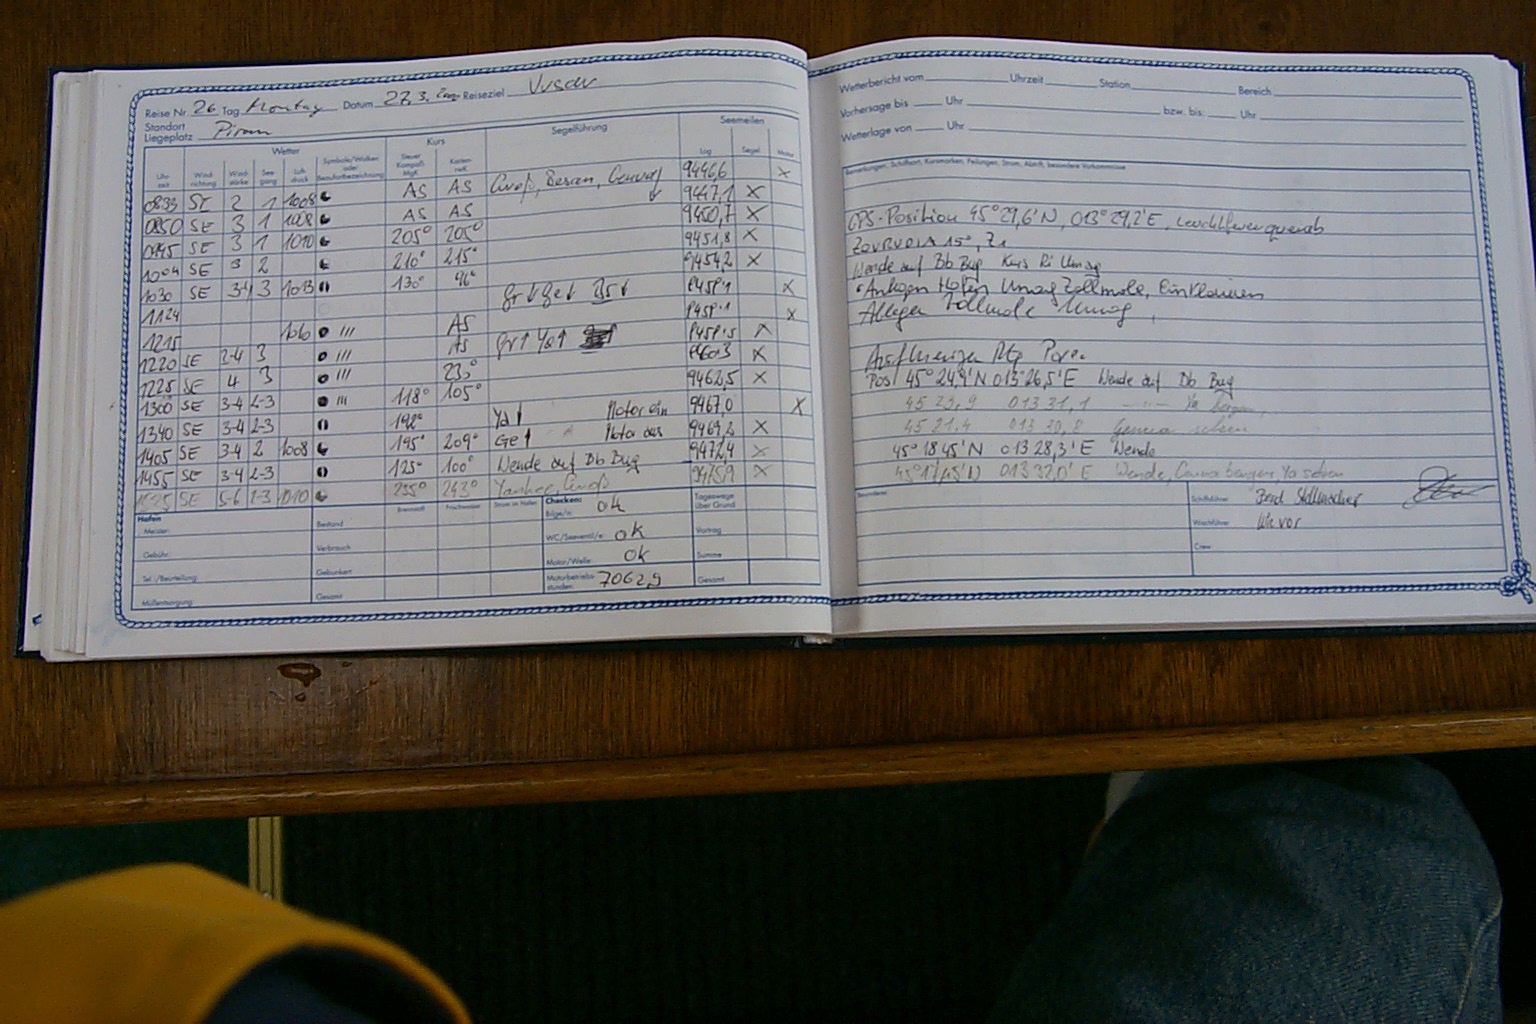 Reise Nr. 26 Tag Montag Datum 27.3. Reiseziel Vrsar
Standort
Liegeplatz Piran
Wetter Kurs Segelführung Seemeilen
Uhrzeit Windrichtung Windstärke Seegang Luftdruck Symbole/Wolken oder Beaufortbezeichnung Steuer Kompaß MgK Karten rwK Log Segel Motor
0833 SE 2 1 1008 AS AS Groß, Besan, Genua 9446,6 X
0850 SE 3 1 1008 AS AS 9447,1 X
0945 SE 3 1 1010 205° 205° 9450,7 X
1004 SE 3 2 210° 215° 9451,8 X
1030 SE 3-4 3 1013 130° 9454,2 X
1124 Gr↓ Ge↓ Bs↓ X
1215 1010 /// AS X
1220 SE 2-4 3 /// AS Gr↑ Ya↑ X
1225 SE 4 3 /// 235° X
1300 SE 3-4 2-3 /// 118° 105° 9462,5 X
1340 SE 3-4 2-3 192° Ya Motor ein 9467,0 X
1405 SE 3-4 2 1008 195° 209° Ge Motor aus 9469,2 X
1455 SE 3-4 2-3 125° 100° Wende auf Bb Bug 9472,4 X
1525 SE 5-6 2-3 1010 235° 243° Yankee, Groß 9475,9 X
Hafen Brennstoff Frischwasser Strom im Hafen Checken: Tageswege über Grund
Meister: Bestand Bilge/n: ok
Gebühr: Verbrauch WC/Seeventil/e: ok Vortrag
Tel.:/Beurteilung Gebunkert Motor/Welle: ok Summe
Müllentsorgung: Gesamt Motorbetriebsstunden: 7062,9 Gesamt
Wetterbericht vom Uhrzeit Station Bereich
Vorhersage bis Uhr bzw. bis: Uhr
Wetterlage von Uhr
Bemerkungen, Schiffsort, Kursmarken, Peilungen, Strom, Abtrift, besondere Vorkommnisse
GPS-Position 45° 29,6' N, 013° 29,2' E, Leuchtfeuer querab
15°,
Wende auf Bb Bug Kurs Ri Umag
Anlegen Hafen Umag Zollmole, Einklarieren
Ablegen Zollmole Umag,
Rtg
Pos! 45° 24,9' N 013° 26,5' E Wende auf Bb Bug
45 23,9 013 31,1 —"— Ya bergen,
45 21,4 013 30,8 Genua setzen
45° 18,45' N 013 28,3' E Wende
45° 17,45' N 013 32,0' E Wende, Genua bergen, Ya setzen
Besonderes Schiffsführer:
Wachführer: wie vor
Crew: